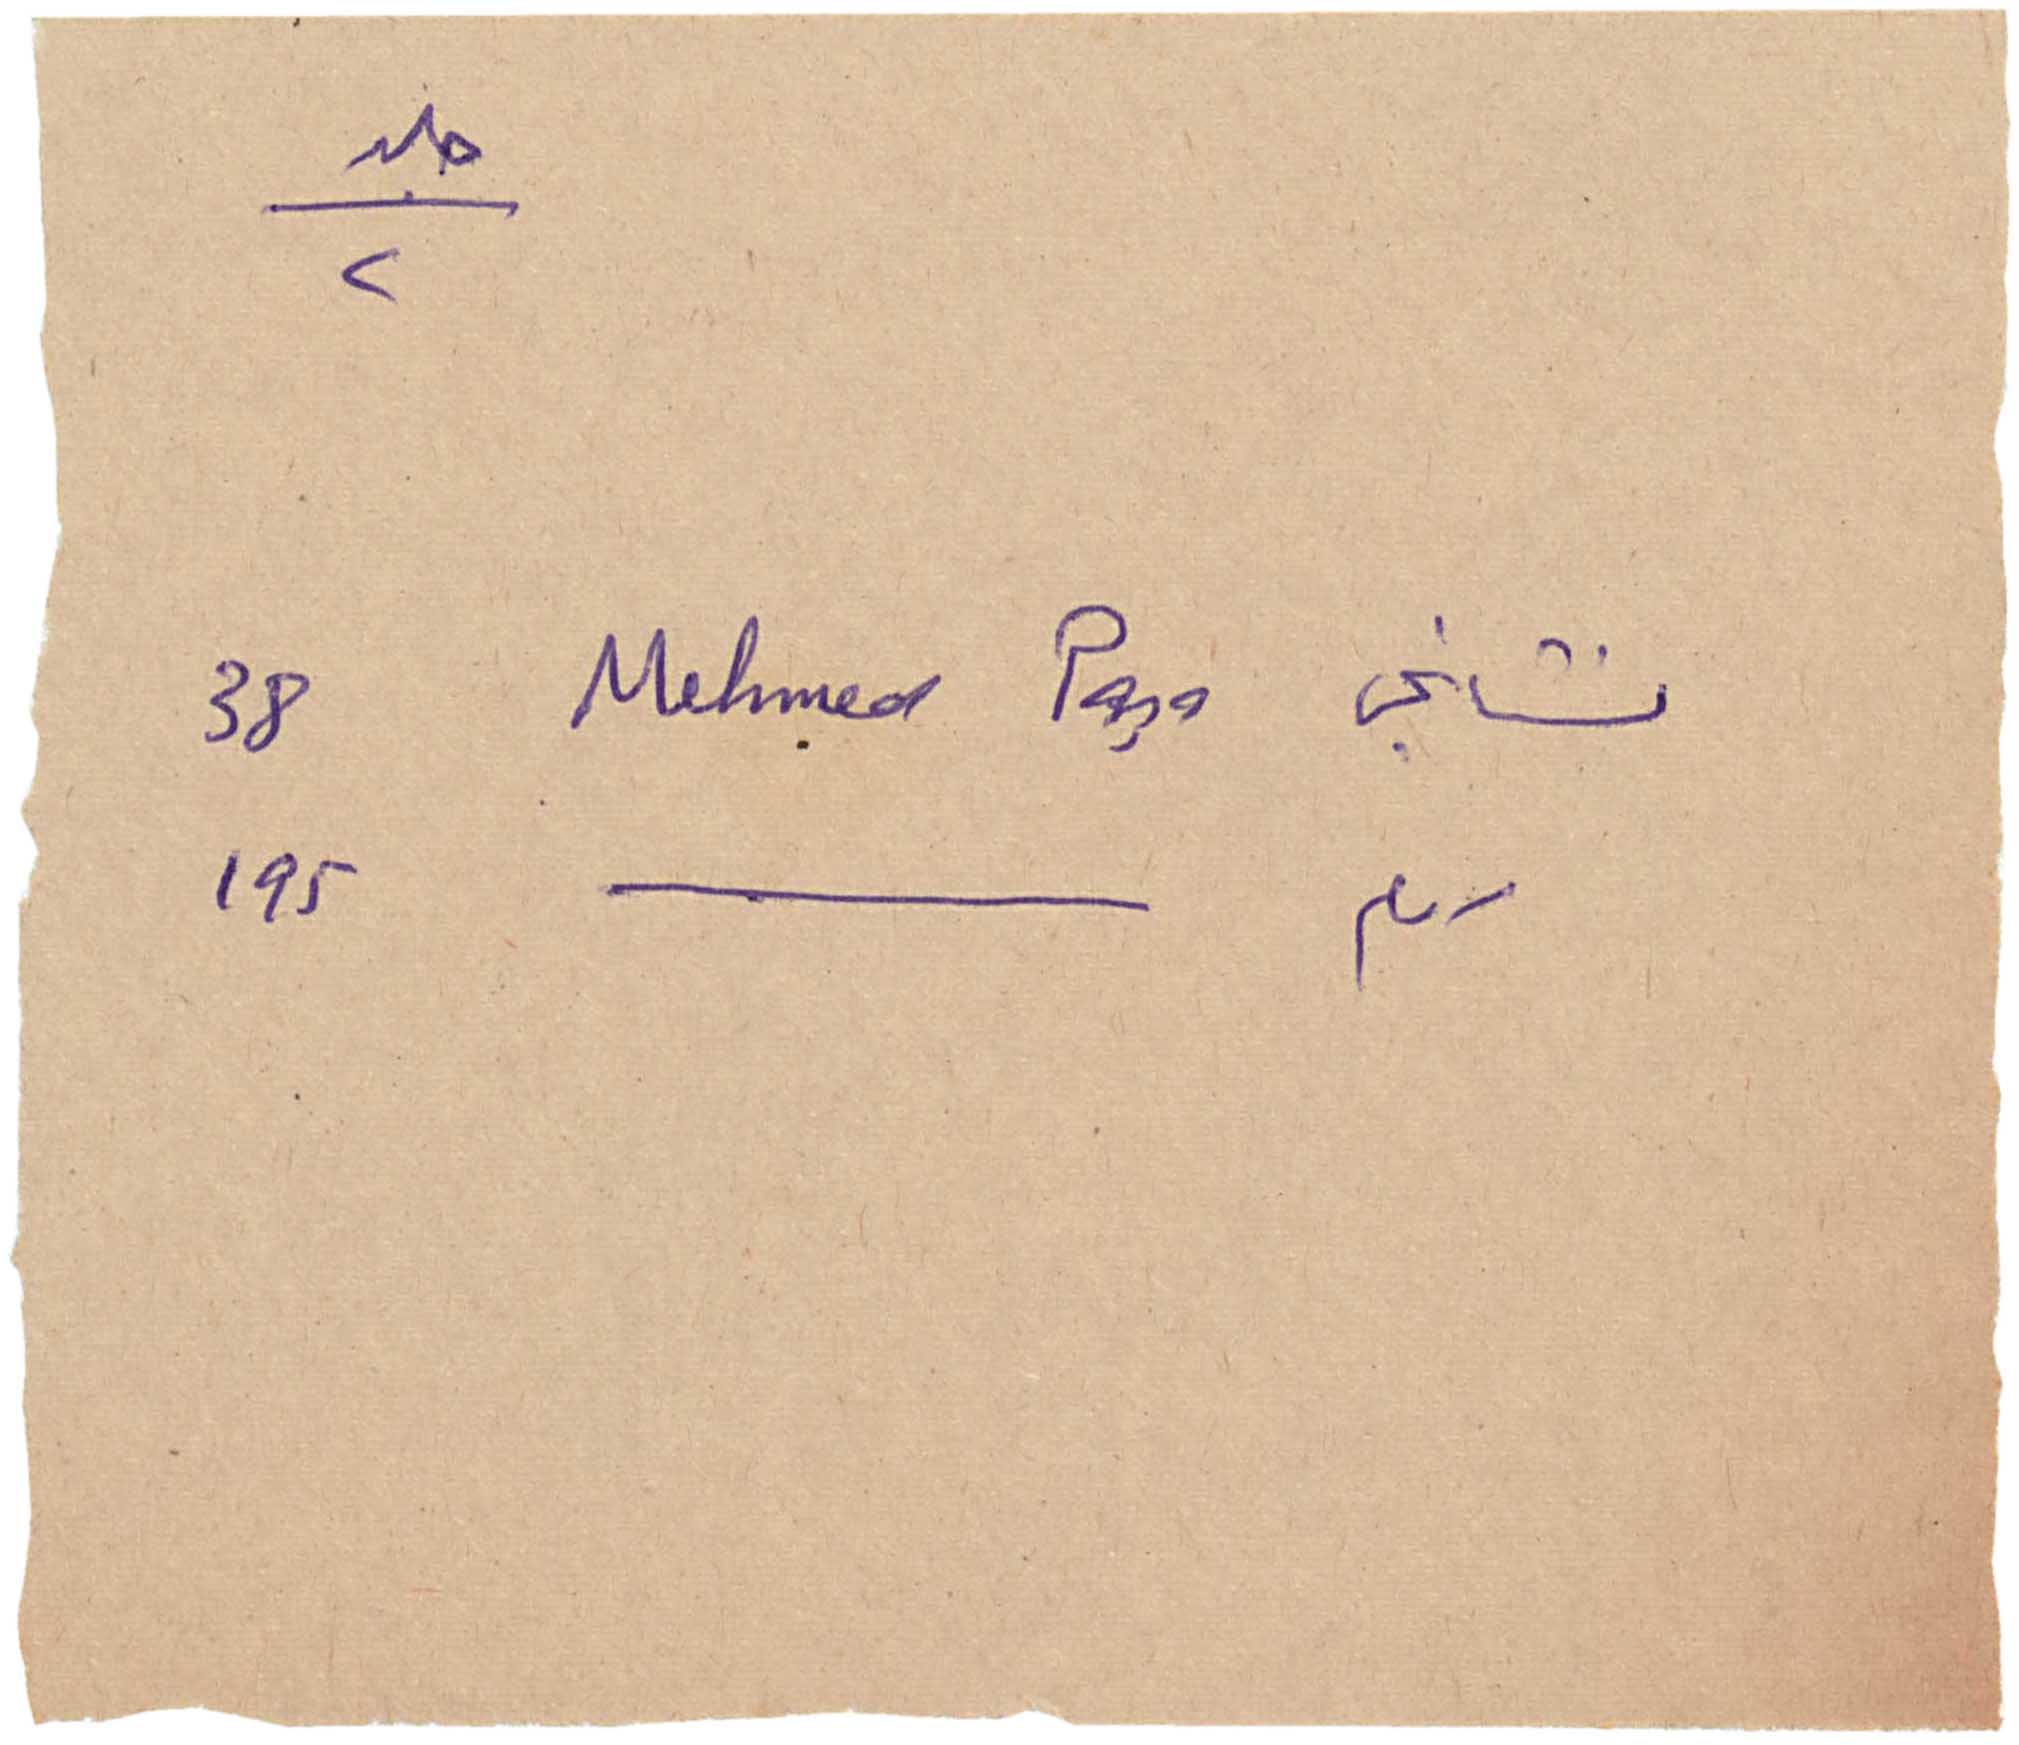 جلد
٢
38 Mehmed Paşa نشانجى
195 ——— رسم